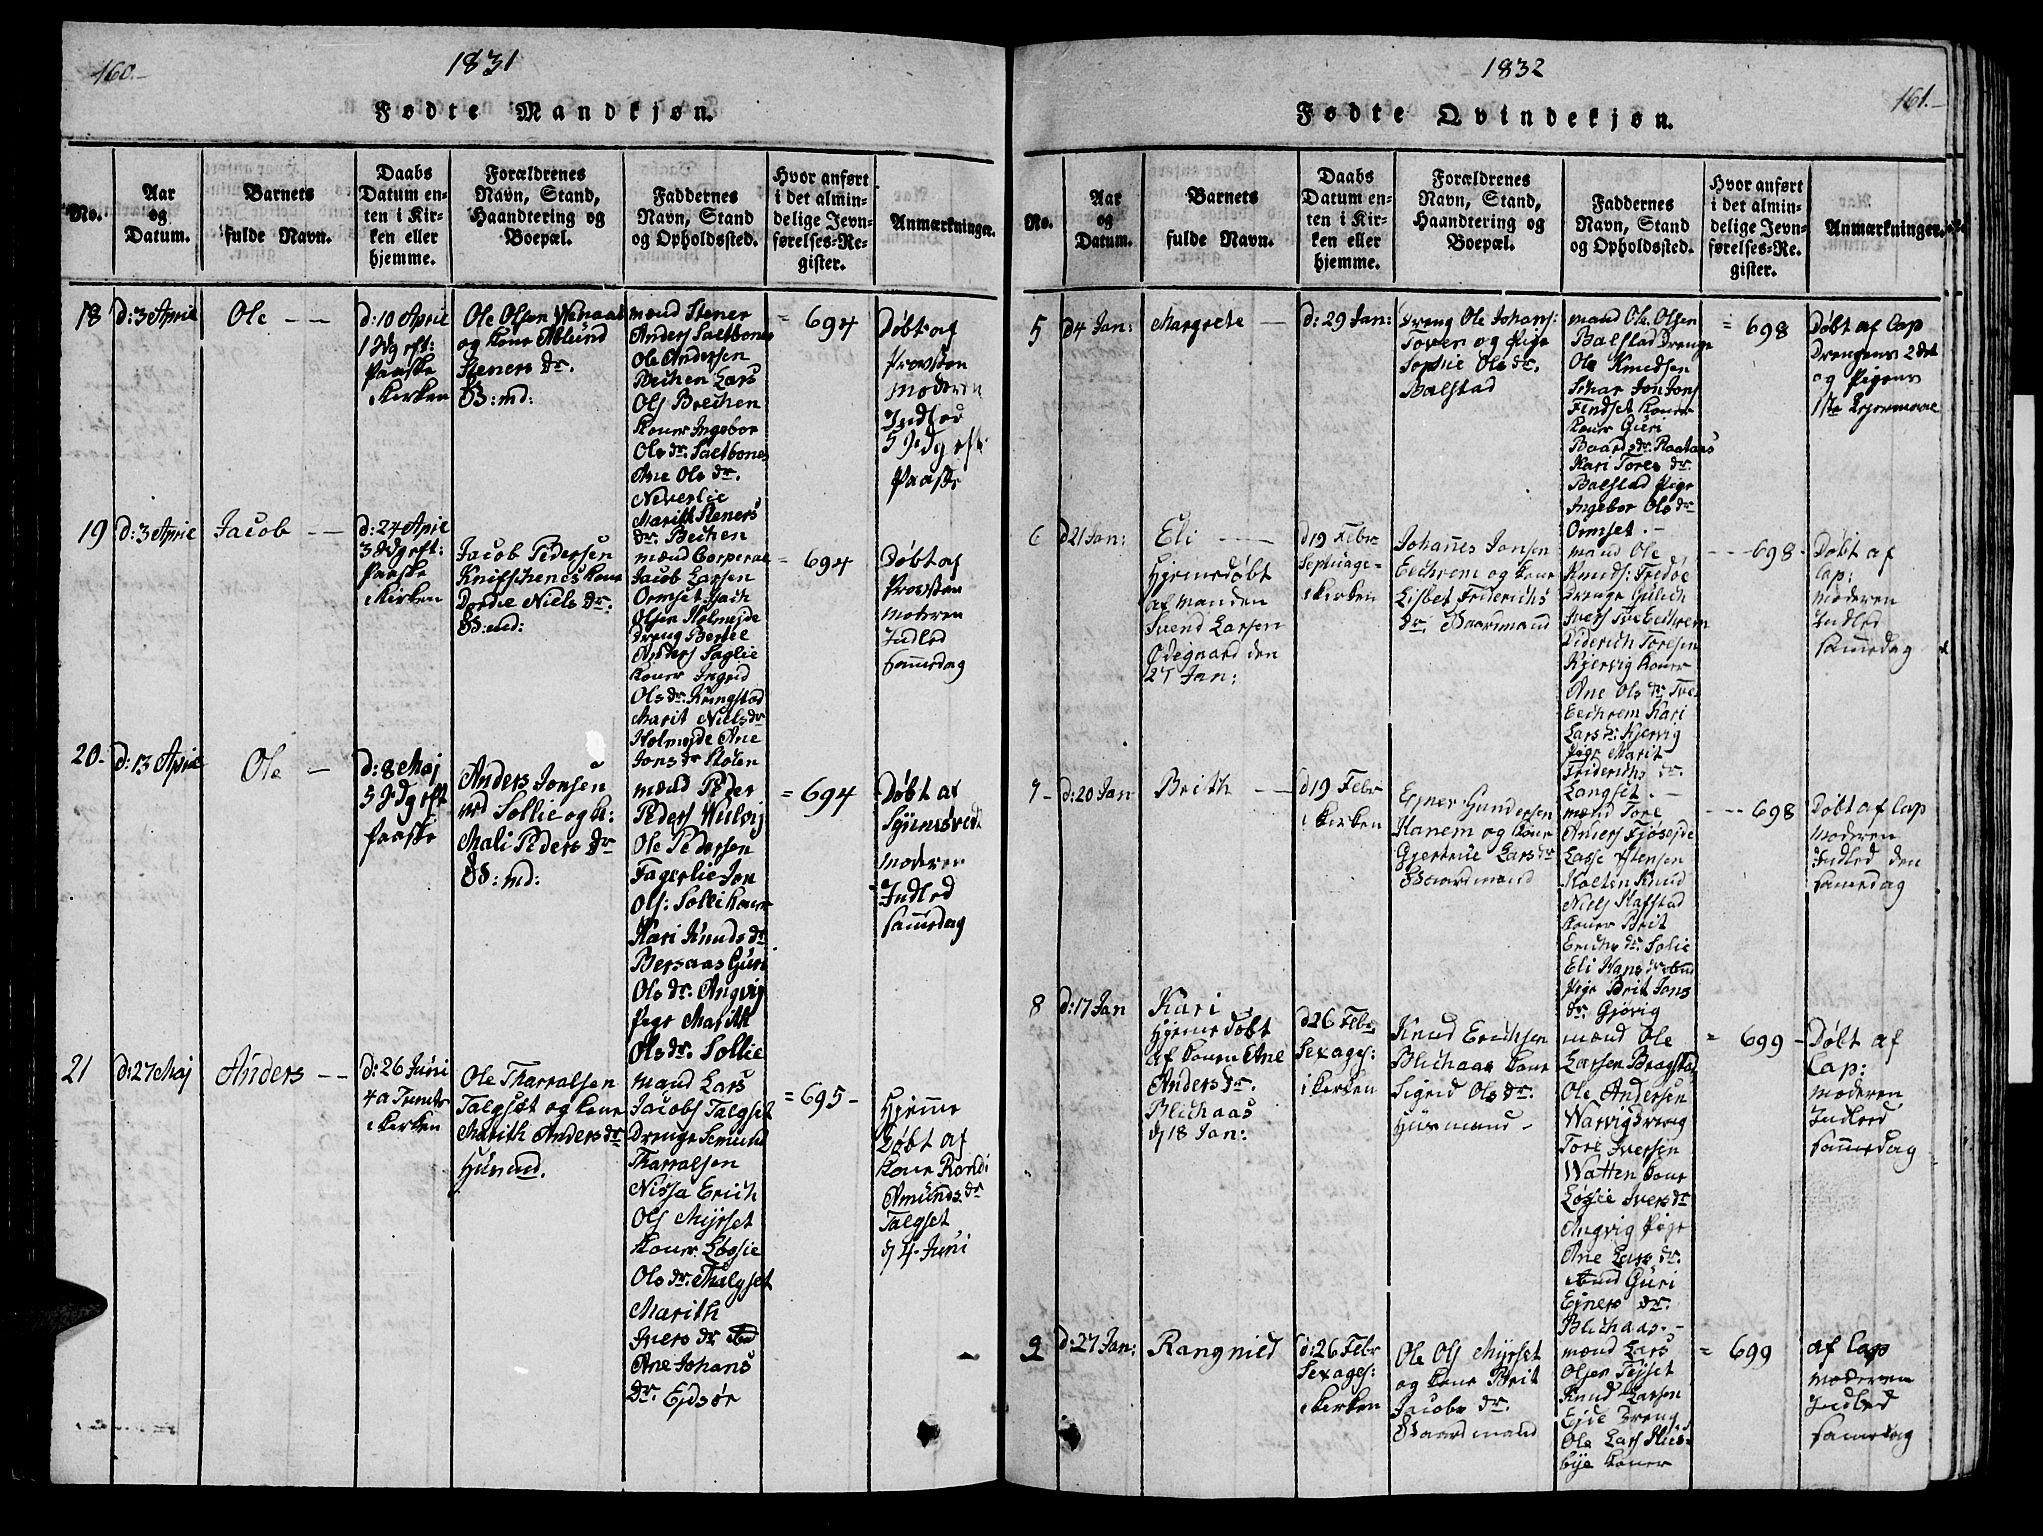 160.-
1831
Fødte Mandkjøn.
No.
Aar
og
Datum.
Barnets
fulde Navn.
Daabs
Datum en-
ten i Kir-
ken eller
hjemme.
Forældrenes
Navn, Stand,
Haandtering og
Boepæl.
Faddernes
Navn, Stand
og Opholdssted.
Hvor anført
i det almin-
delige Jevn-
førelses-Re-
gister.
Anmærkninger.
18
d: 3 April
Ole
d: 10 April
Paaske
i Kirken
Ole Olsen
og Kone
Steners dr.
mænd Stener
Anders Saltbones
Ole Andersen
Bechen Lars
Ols Brechen
Koner Ingebor
Ols dr. Saltbones
Ane Ols dr.
Neverlie
Marith Steners
dr. Bechen
= 694
Døbt af
Provsten
Moderen
Indled
Paaske
19
d: 3 April
Jacob
d: 24 April
Paaske
i Kirken
Jacob Pedersen
Dordie Niels dr.
mænd Corperal
Jacob Larsen
Ormset
Olsen Holmejde
Dreng
Anders Saglie
Koner Ingrid
Ols dr. Kringstad
Marit Niels dr
Holmejde Ane
Jons dr Stolen
= 694
Døbt af
Provsten
Moderen
Indled
samedag
20-
d: 13 April
Ole
d: 8 Maj
Paaske
Anders Jonsen
Sollie og K:
Mali Peders dr
mænd Peder
Peders Wulvig
Ole Pedersen
Fagerlie Jon
Ols: Solli Koner
Kari Knuds dr
Bersaas Guri
Ols dr. Angvig
Pige Marith
Ols dr. Sollie
= 694
Døbt af
Moderen
Indled
samedag
21
d: 27 Maj
Anders
d: 26 Juni
i Kirken
Ole Tharralsen
Talgset og Kone
Marith Anders dr
mænd Lars
Jacobs Talgset
Drenge Semund
Tharralsen
Nissa Erich
Ols Myrset
Koner Lossie
Ols dr. Thalgset
Marith
Ivers dr
Ane Johans
dr. Ejdsør
= 695 -
Hjemme
Døbt af
Kone Randi
Amunds dr
Talgset
d 4 Juni
1832
161.-
Fødte Qvindekjøn.
No.
Aar
og
Datum.
Barnets
fulde Navn.
Daabs
Datum en-
ten i Kir-
ken eller
hjemme.
Forældrenes
Navn, Stand,
Haandtering og
Boepæl.
Faddernes
Navn, Stand
og Opholdssted.
Hvor anført
i det almin-
delige Jevn-
førelses-Re-
gister.
Anmærkninger.
5
d 4 Jan:
Margrete
d: 29 Jan:
Dreng Ole Johans:
og Pige
Sophie Ols dr.
Balstad
mænd Ole Olsen
Balstad Drenge
Ole Knudsen
Jon Jons
Koner Guri
Baards dr. Raanaas
Kari Tores dr.
Balstad Pige
Ingebor Ols dr
Ormset.-
= 698
Døbt af Cap
Drengens 2det
og Pigens
1ste Lejermaal
6
d 21 Jan:
Eli
Hjemedøbt
af Manden
Svend Larsen
Ødegaard den
27 Jan:
d 19 Febr
Septuage-
i Kirken
Johannes Jonsen
Eechrem og Kone
Lisbet Friderichs
dr. Gaardmand
mænd Ole
Knuds: Fredøe
Drenge Gulich
Ivers Eechrem
Diderich Toresen
Kjervig Koner
Ane Ols dr
Eechrem Kari
Lars dr: Kjervig
Pige Marit
Friderichs dr.
Langset.-
- - - 698 -
Døbt af
Cap:
Moderen
Indled
samedag
7 -
d: 20 Jan
Brith
d 19 Febr
i Kirken
Ejner Gundersen
Hanem og Kone
Gjertrue Lars dr
Gaardmand
mænd Tore
Anders Fjøsejde
Lasse Stensen
Holten Knud
Niels Hafstad
Koner Brit
Erichs dr. Solie
Eli Hans dr
Pige Brit Jons
dr. Gjøvig
- - - 698
Døbt af Cap
Moderen
Indled den
samedag
8
d: 17 Jan
Kari
Hjemedøbt
af Konen Ane
Anders dr.
Blichaas
d 18 Jan:
d 26 Febr
Sexages:
i Kirken
Knud Erichsen
Blichaas Kone
Sigrid Ols dr.
Husmand -
mænd Ole
Larsen Bragstad
Ole Andersen
Warvig Dreng
Tore Iversen
Watten Kone
Lossie Ivers dr
Angvig Pige
Ane Lars dr.
Guri
Ejners dr.
Blichaas.-
= 699 -
Døbt af
Cap:
Moderen
Indled
samedag
9
d: 27 Jan:
Rangnild
d: 26 Febr
Sexages:
i Kirken
Ole Ols Myrset
og Kone Brit
Jacobs dr.
Gaardmand
mænd Lars
Olsen
Knud Larsen
Ejde Dreng
Ole Lars
Koner
= 699
af Cap
Moderen
Indled
samedag